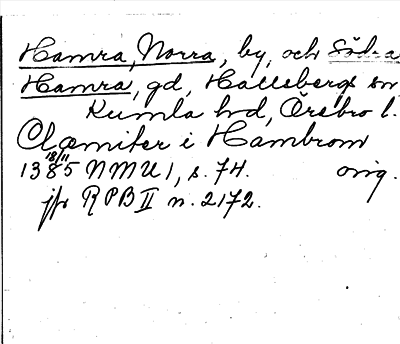 Hamra, Norra, by, och Södra
Hamra, gd, Hallsbergs sn
Kumla hd, Örebro l.
Clæmiter i Hambrom
18/11
1385 NMU 1, s. 74. orig.
jfr RPB II n. 2172.